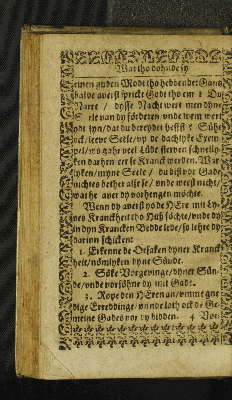 Wat tho dohnde sy
einen guden Modt tho hebbende: Gants
balde averst sprickt Godt tho em: Du
Narre / dysse Nacht wert men dyne
Seele van dy förderen unde wem wert
ydt syn / dat du bereydet heffst? Sühe
ock / leeve Seele / vp de dachlyke Exem-
pel / wo gahr veel Lüde sterven schnelly-
ken dar hen eer se Kranck werden. War-
lyken / myne Seele / du bist vor Gade
nichtes beter alse se / unde weest nicht /
wat he aver dy vorhengen möchte.
Wenn dy averst yo de HEre mit Ly-
ves Kranckheit tho Huß söchte / unde dy
in dyn Krancken Bedde lede / so lehre dy
darinn schicken:
1. Erkenne de Orsaken dyner Kranck-
heit / nömlyken dyne Sünde.
2. Söke Vorgevinge / dyner Sün-
de / unde vorsöhne dy mit Gade.
3. Rope den HEren an / umme gne-
dige Erreddinge / unde lath ock de Ge-
meine Gades vor dy bidden. 4 Vor-